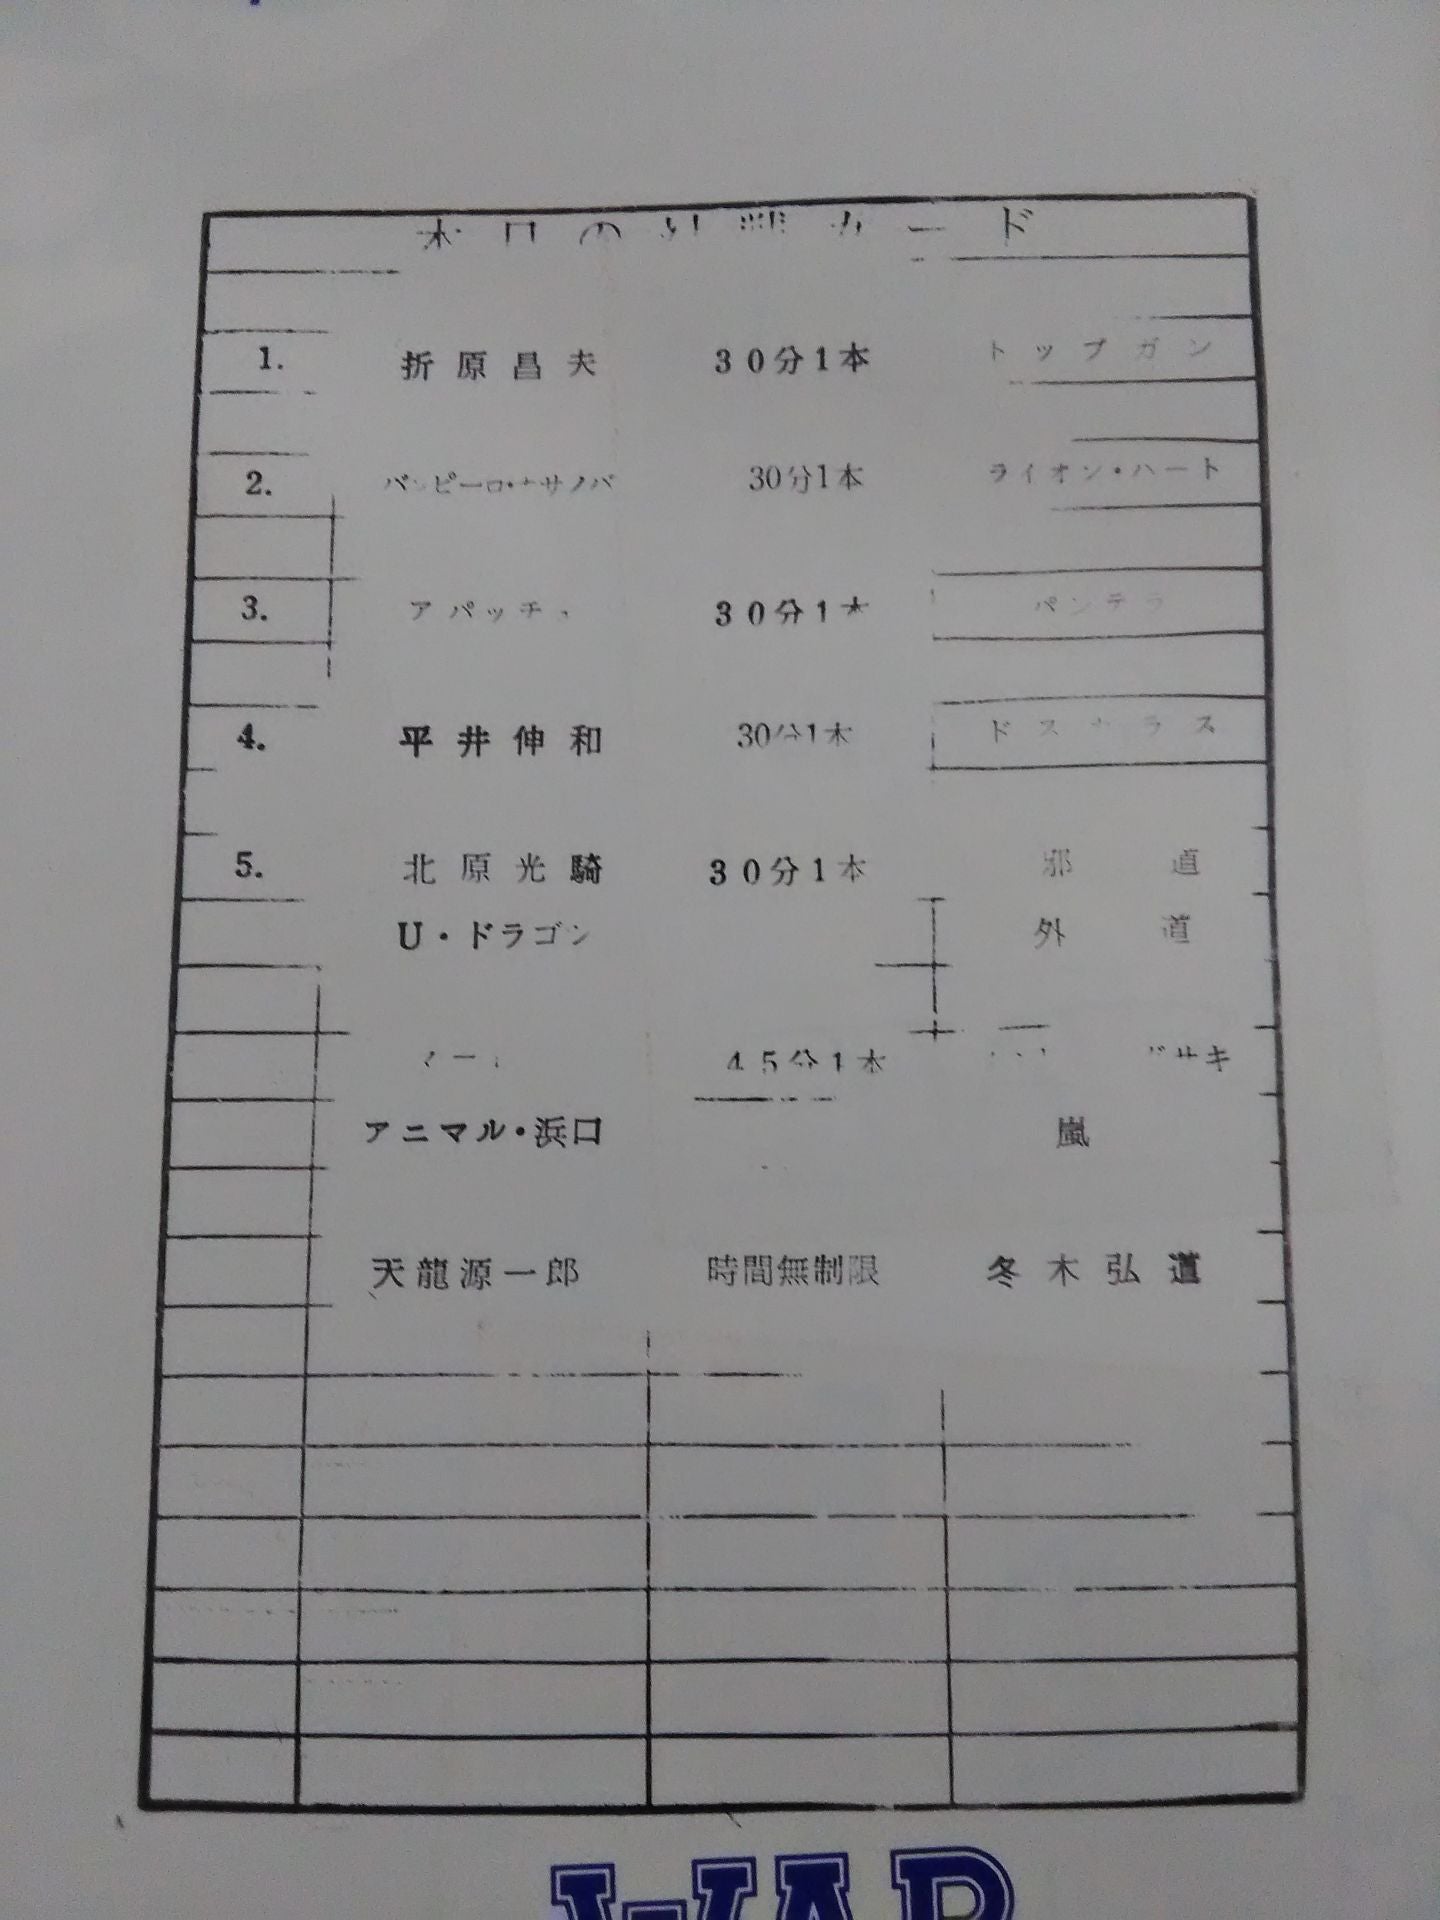 本日の対戦カード
1. 折原昌夫 30分1本 トップガン
2. バンピーロ・カサノバ 30分1本 ライオン・ハート
3. アパッチェ 30分1本 パンテラ
4. 平井伸和 30分1本 ドスカラス
5. 北原光騎 30分1本 邪道
U・ドラゴン 外道
45分1本
アニマル・浜口 嵐
天龍源一郎 時間無制限 冬木弘道
WAR